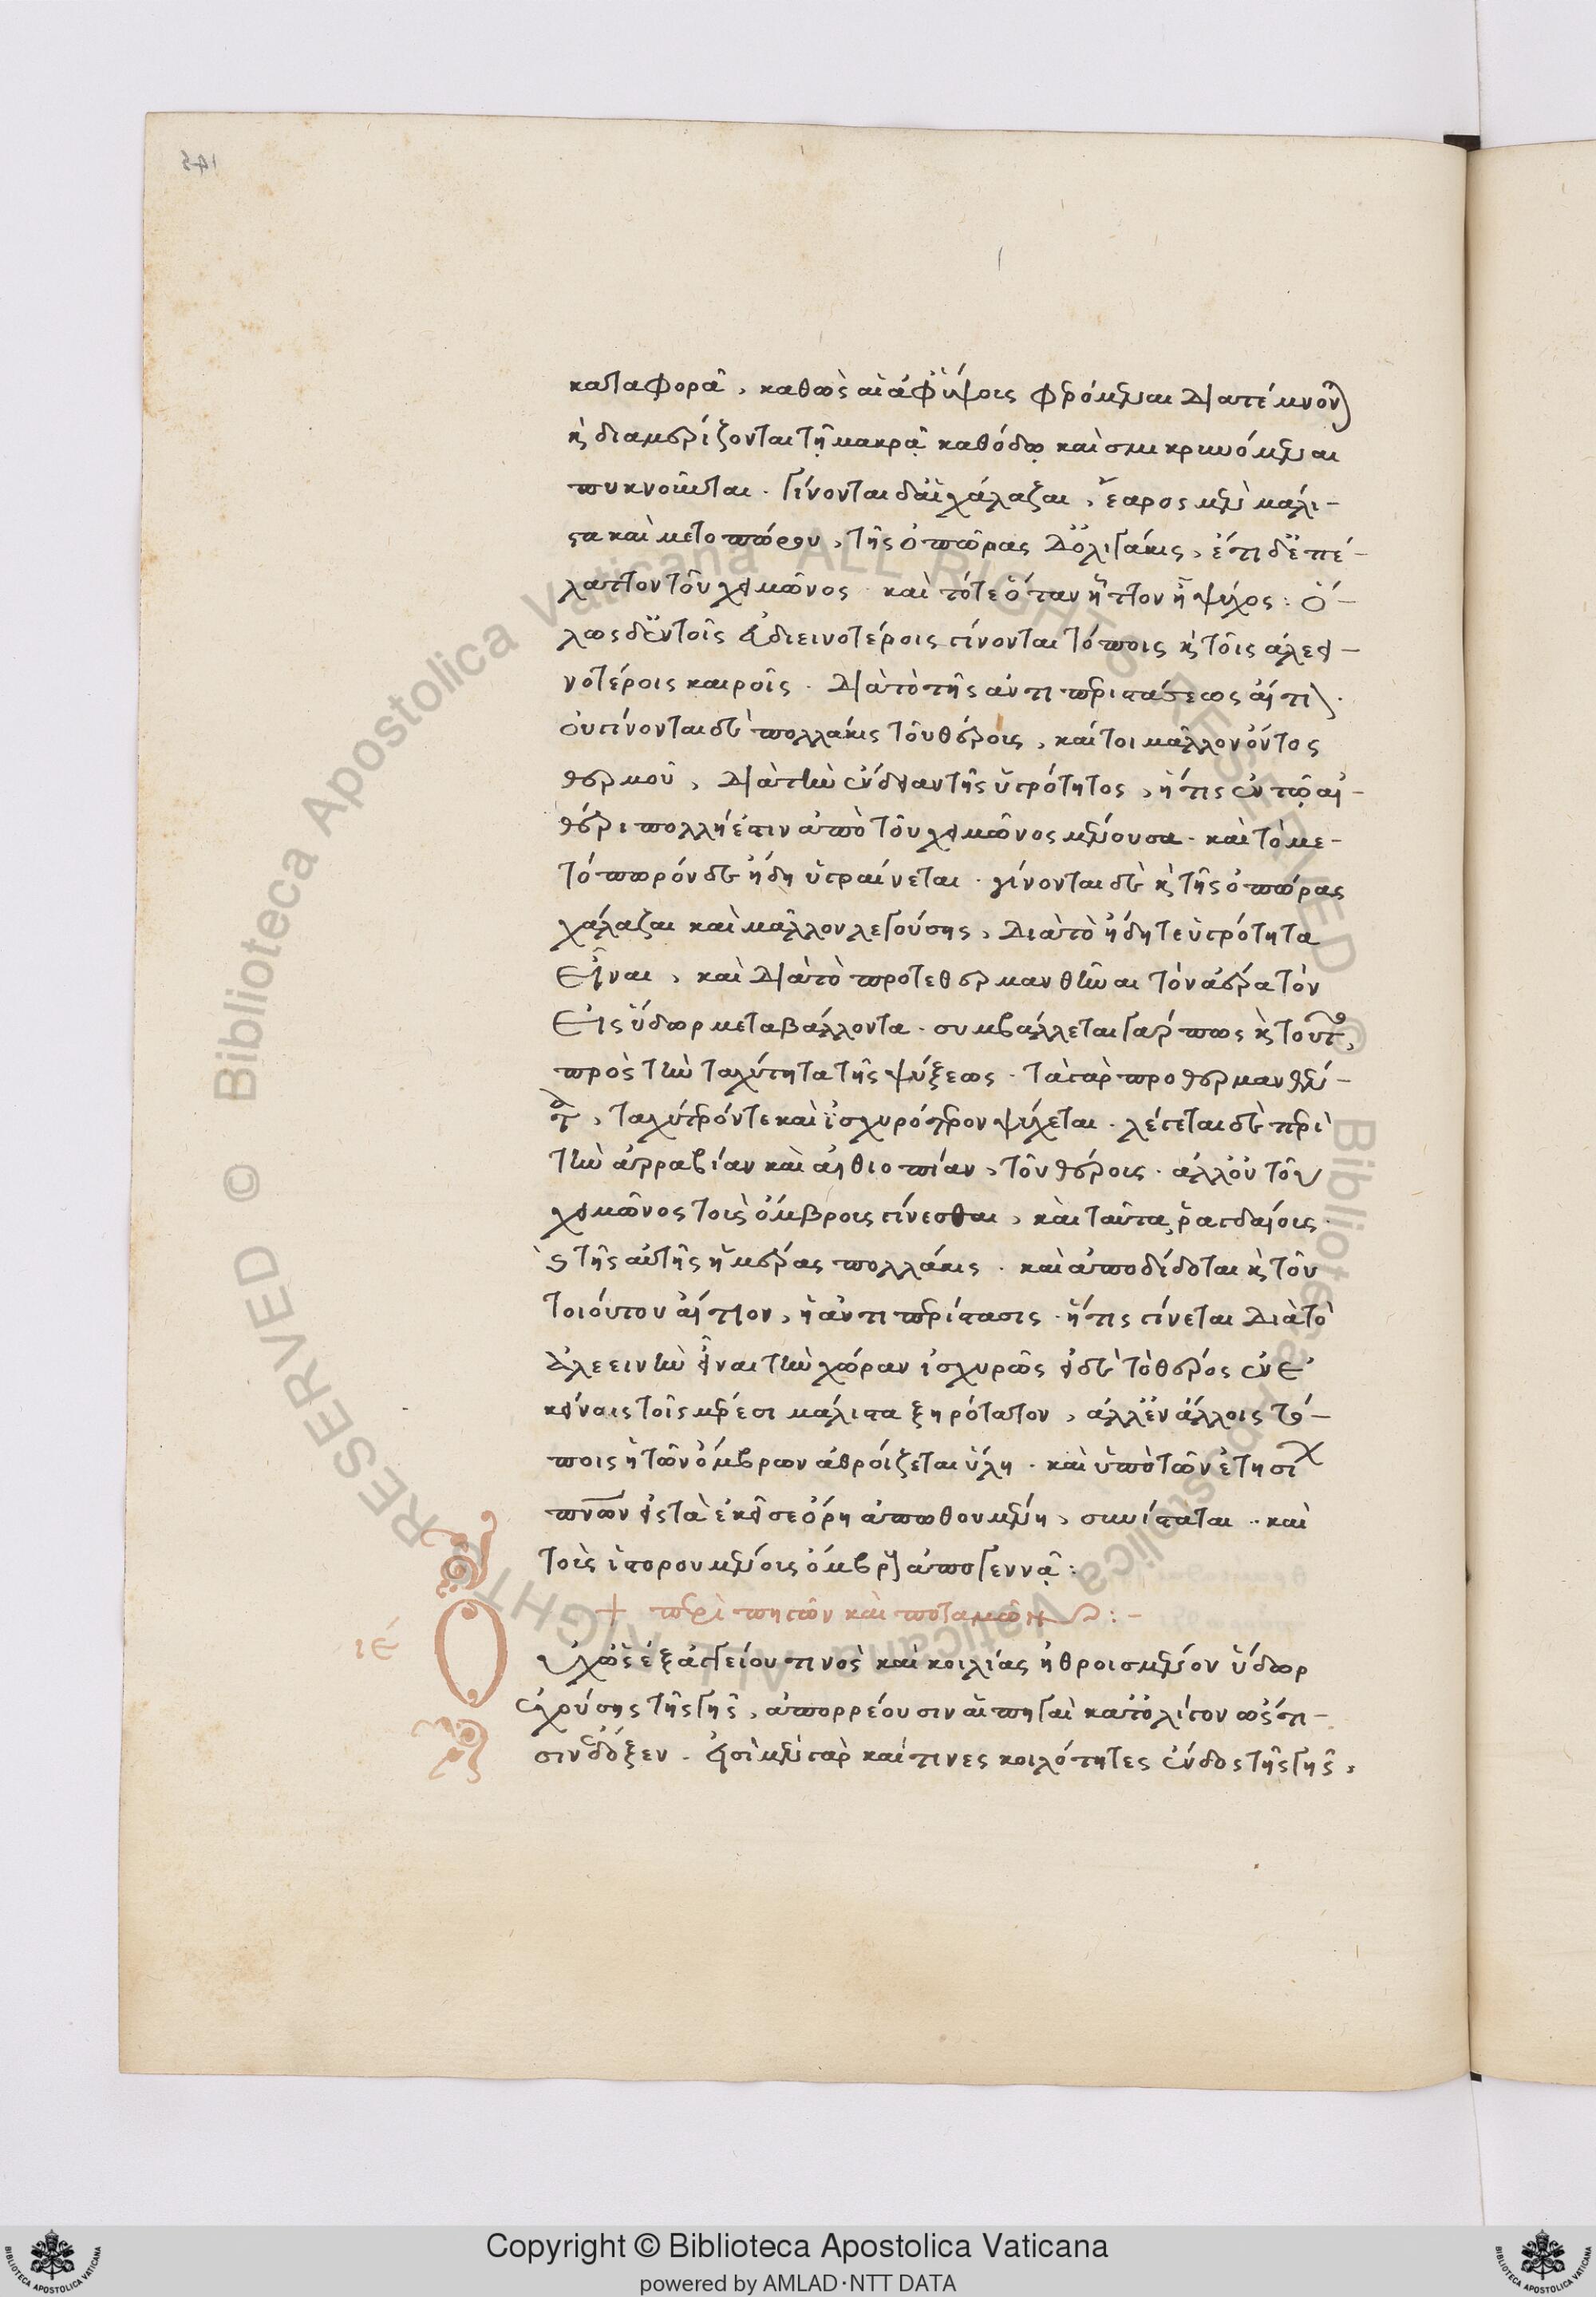 καταφορᾶ, καθὼς αἱ ἀφ' ὕψους φερόμεναι διατέμνονται
καὶ διαμερίζονται τῇ μακρᾷ καθόδῳ καὶ σμικρυνόμεναι
πυκνοῦνται. γίνονται δὲ αἱ χάλαζαι, ἔαρος μὲν μάλι-
στα καὶ μετοπώρου, τῆς ὀπώρας δ' ὀλιγάκις, ἔτι δ' ἐπ' ἔ-
λαττον τοῦ χειμῶνος καὶ τότε ὅταν ἧττον ᾖ ψύχος: ὅ-
λως δ' ἐν τοῖς εὐδιεινοτέροις γίνονται τόποις καὶ τοῖς ἀλεει-
νοτέροις καιροῖς. διὰ τὸ τῆς ἀντιπεριστάσεως αἴτιον.
οὐ γίνονται δὲ πολλάκις τοῦ θέρους, καίτοι μᾶλλον ὄντος
θερμοῦ, διὰ τὴν ἔνδειαν τῆς ὑγρότητος, ἥτις ἐν τῷ αἰ-
θέρι πολλή ἐστιν ἀπὸ τοῦ χειμῶνος μένουσα. καὶ τὸ με-
τόπωρόν δὲ ἤδη ὑγραίνεται. γίνονται δὲ καὶ τῆς ὀπώρας
χάλαζαι καὶ μᾶλλον ληγούσης, διὰ τὸ ἤδη τε ὑγρότητα
εἶναι, καὶ διὰ τὸ προτεθερμανθῆναι τὸν ἀέρα τὸν
εἰς ὕδωρ μεταβάλλοντα. συμβάλλεται γάρ πως καὶ τοῦτο,
πρὸς τὴν ταχύτητα τῆς ψύξεως. τὰ γὰρ προθερμανθέν-
τα, ταχύτερόν τε καὶ ἰσχυρότερον ψύχεται. λέγεται δὲ περὶ
τὴν ἀρραβίαν καὶ αἰθιοπίαν, τοῦ θέρους. ἀλλ' οὐ τοῦ
χειμῶνος τοὺς ὄμβρους γίνεσθαι, καὶ ταῦτα ῥαγδαίους.
καὶ τῆς αὐτῆς ἡμέρας πολλάκις. καὶ ἀποδίδοται καὶ τοῦ
τοιούτου αἴτιον, ἡ ἀντιπερίστασις. ἥτις γίνεται διὰ τὸ
ἀλεεινὴν εἶναι τὴν χώραν ἰσχυρῶς εἰ δὲ τὸ θέρος ἐν ἐ
κείνοις τοῖς μέρεσι μάλιστα ξηρότατον, ἀλλ' ἐν ἄλλοις τό-
ποις ἡ τῶν ὄμβρων ἀθροίζεται ὕλη. καὶ ὑπὸ τῶν ἐτησίων
πνῶν εἰς τὰ ἐκεῖσε ὄρη ἀπωθουμένη, συνίσταται. καὶ
τοὺς ἱστορουμένους ὄμβρους ἀπογεννᾷ:
+ περὶ πηγῶν καὶ ποταμῶν:-
ιε Οὐχ ὡς ἐξ ἀγγείου τινὸς καὶ κοιλίας ἠθροισμένον ὕδωρ
ἐχούσης τῆς γῆς, ἀπορρέουσιν αἱ πηγαὶ κατ' ὀλίγον ὥς τι-
σιν ἔδοξεν. εἰσὶ μὲν γὰρ καί τινες κοιλότητες ἔνδος τῆς γῆς,